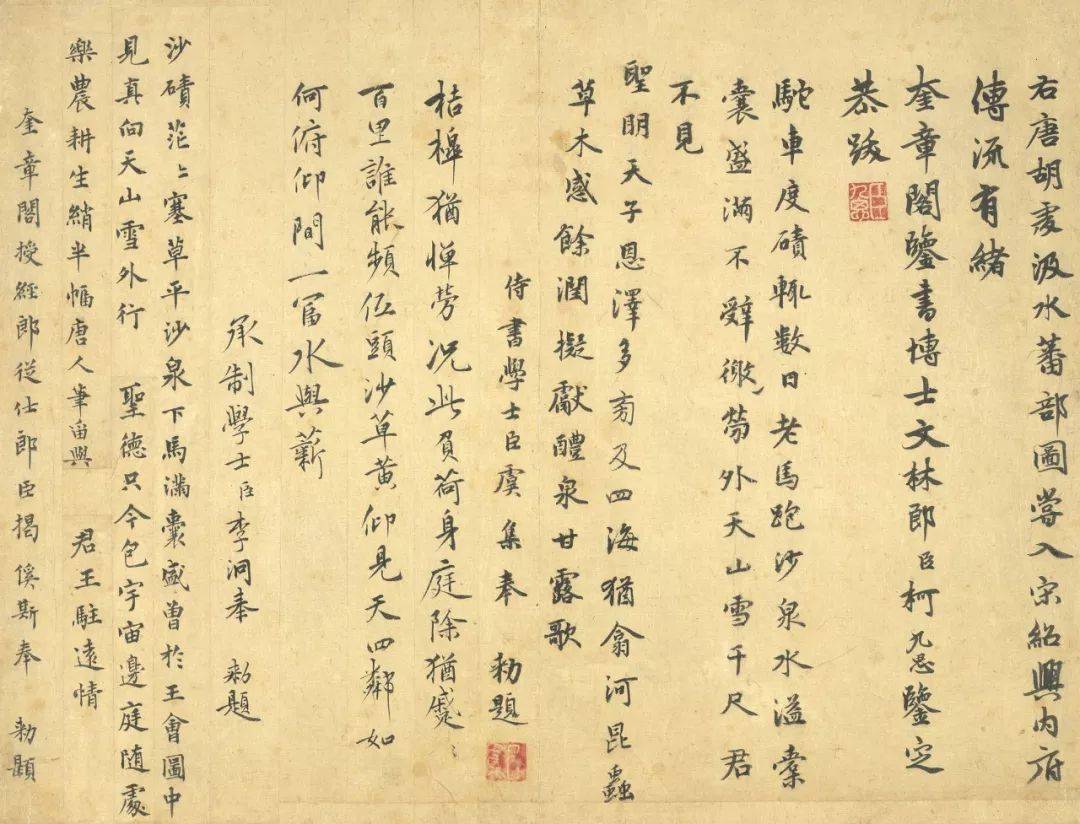 右唐胡虔汲水蕃部圖嘗入宋紹興內府
傳流有緒
奎章閣鑒書博士文林郎臣柯九思鑒定
恭跋
駝車度磧輒數日老馬跑沙泉水溢橐
囊盛滿不辭微勞外天山雪千尺君
不見
聖明天子恩澤多旁及四海猶翕河昆蟲
草木感餘潤擬獻醴泉甘露歌
侍書學士臣虞集奉 勑題
桔槔猶憚勞況此負荷身庭除猶蹙〻
百里誰能頻低頭沙草黃仰見天四鄰如
何俯仰間一富水與薪
承制學士臣李泂奉 勑題
沙磧茫〻塞草平沙泉下馬滿囊盛曾於王會圖中
見真向天山雪外行 聖德只今包宇宙邊庭隨處
樂農耕生綃半幅唐人筆留與 君王駐遠情
奎章閣授經郎從仕郎臣揭傒斯奉 勑題